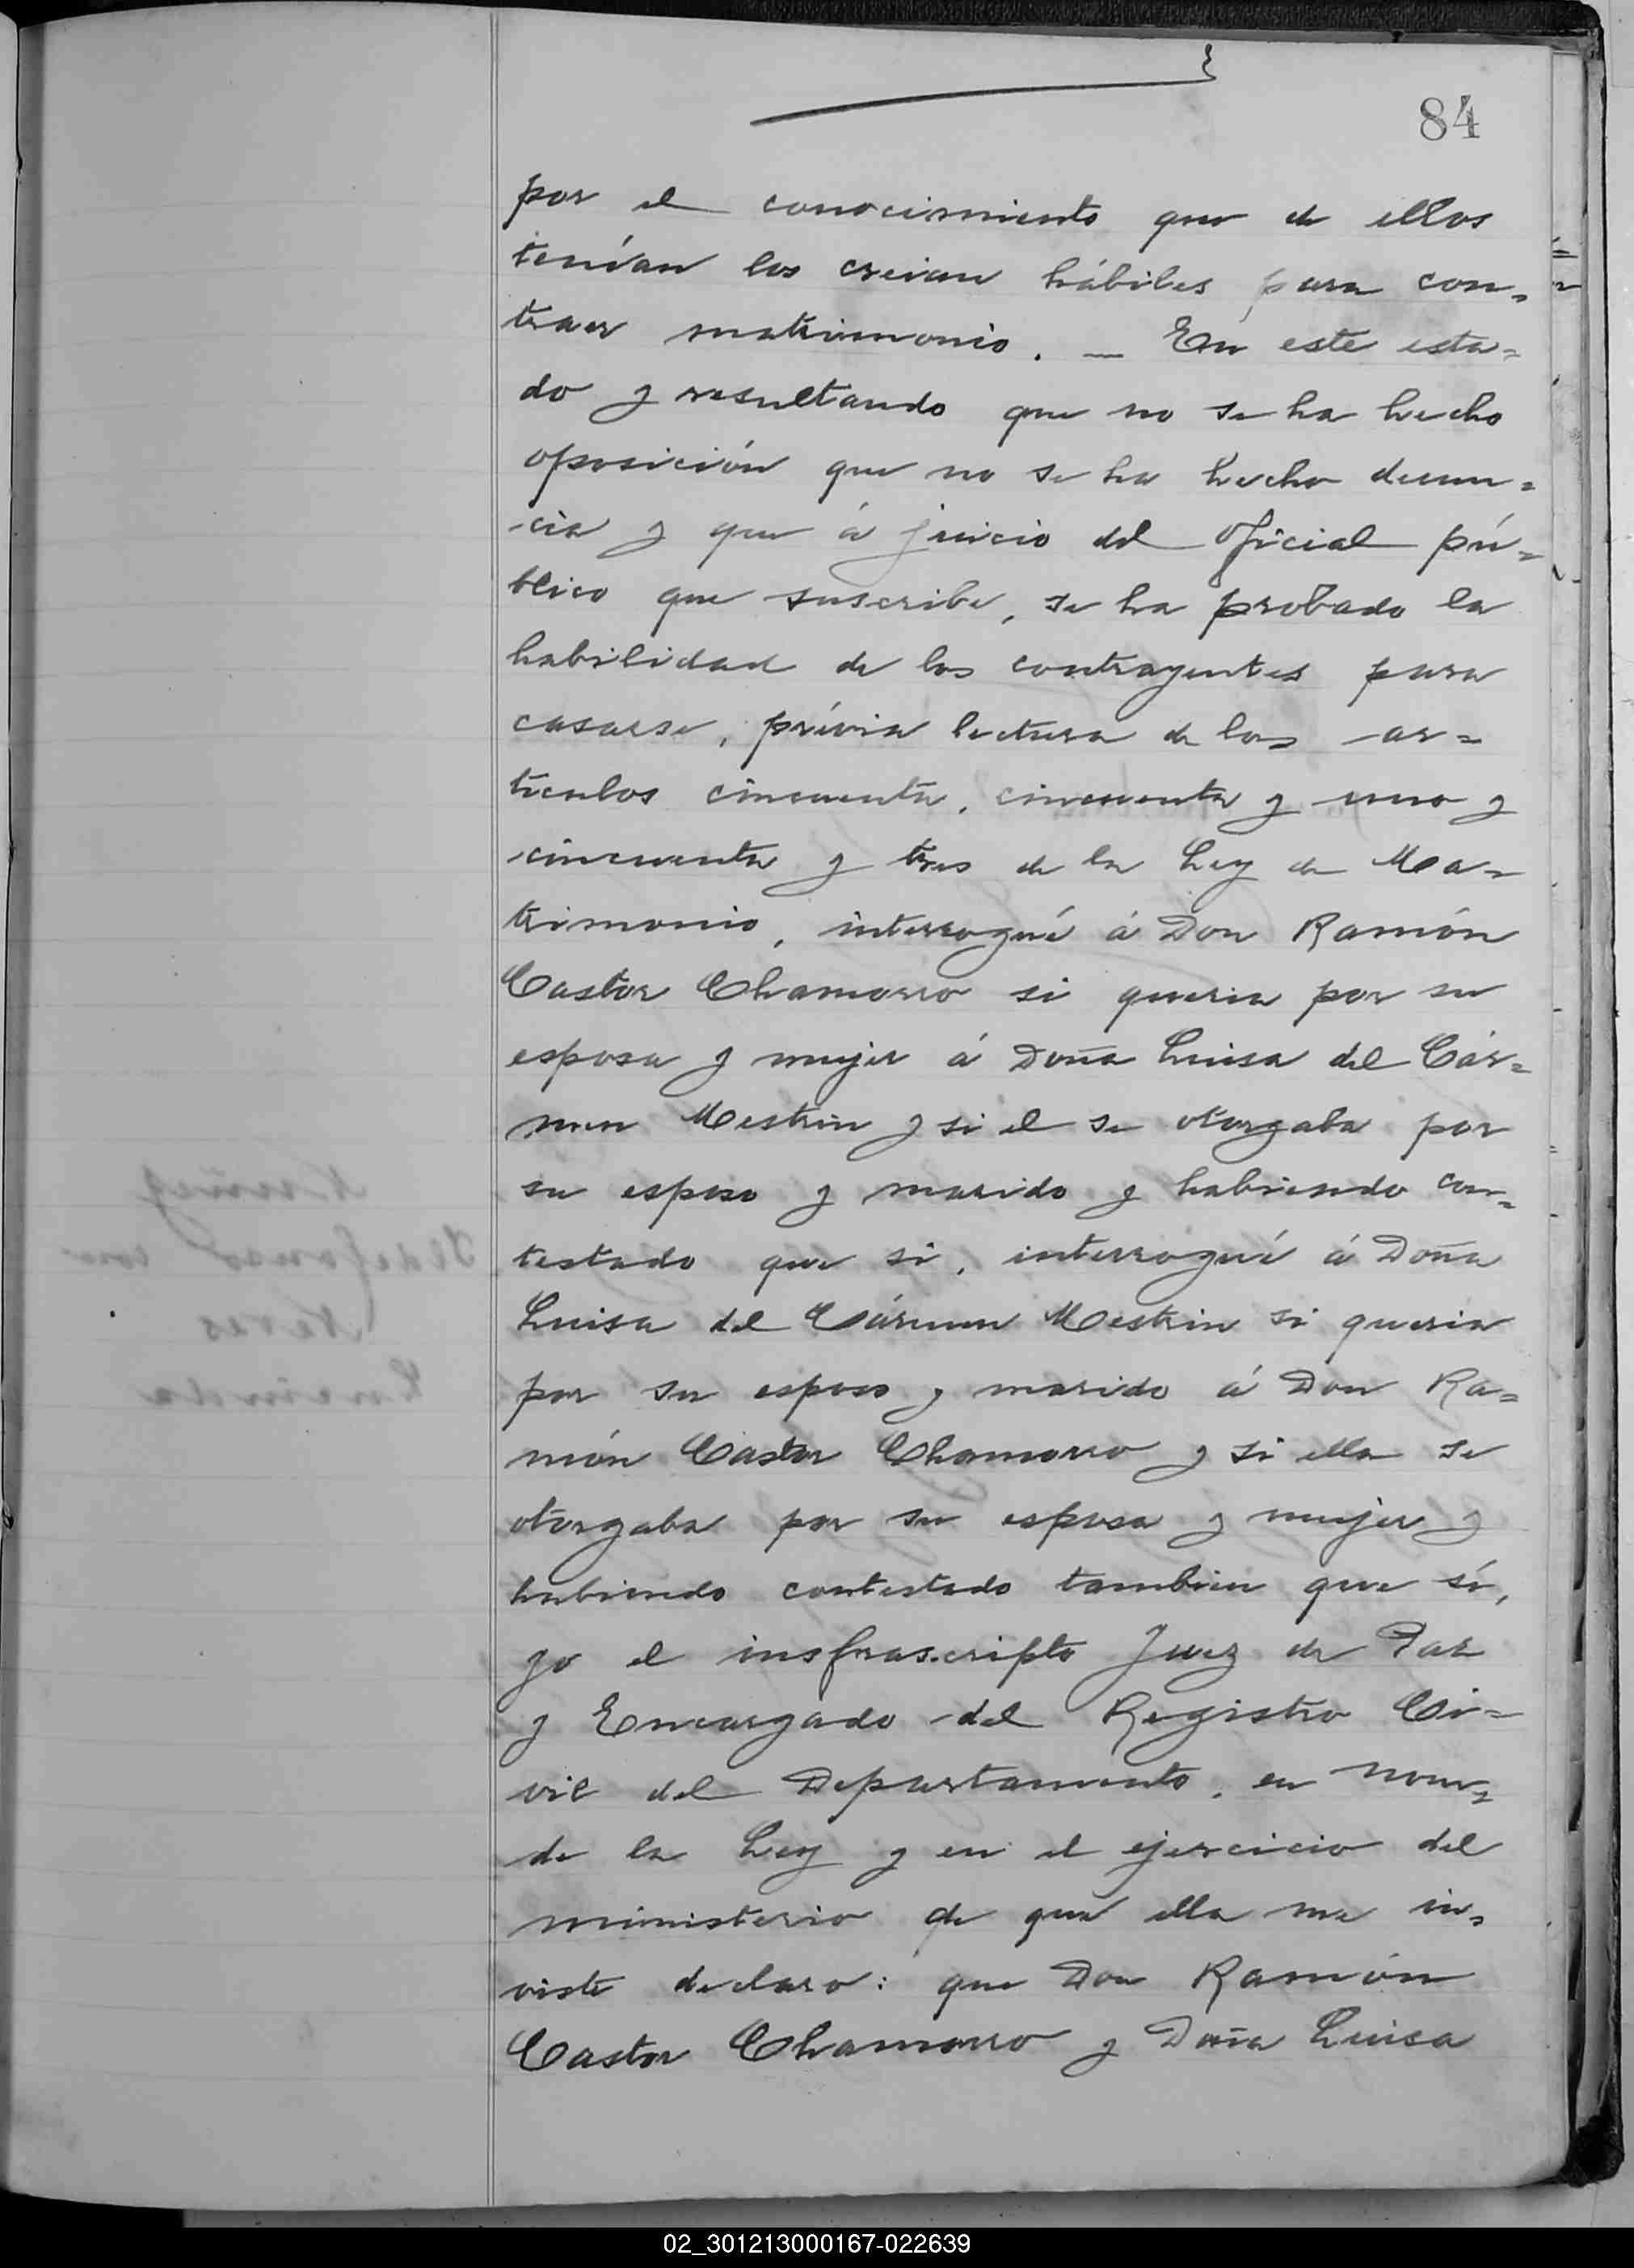 84
por el conocimiento que de ellos
tenían los creian hábiles para con=
traer matrimonio. — En este esta=
do y resultando que no se ha hecho
oposición que no se ha hecho denun=
cia y que á juicio del oficial pú=
blico que suscribe, se ha probado la
habilidad de los contrayentes para
casarse, prévia lectura de los ar=
tículos cincuenta, cincuenta y uno y
cincuenta y tres de la Ley de Ma=
trimonio, interrogué á Don Ramón
Castor Chamorro si queria por su
esposa y mujer á Doña Luisa del Cár=
men Mestrin y si el se otorgaba por
su esposo y marido y habiendo con=
testado que si, interrogué á Doña
Luisa del Cármen Mestrin si queria
por su esposo y marido á Don Ra=
món Castor Chamorro y si ella se
otorgaba por su esposa y mujer y
habiendo contestado tambien que sí,
yo el insfrascripto Juez de Paz
y Encargado del Registro Ci=
vil del Departamento, en nom=
de la Ley y en el ejercicio del
ministerio de que ella me in=
viste declaro: que Don Ramón
Castor Chamorro y Doña Luisa
02_301213000167-022639